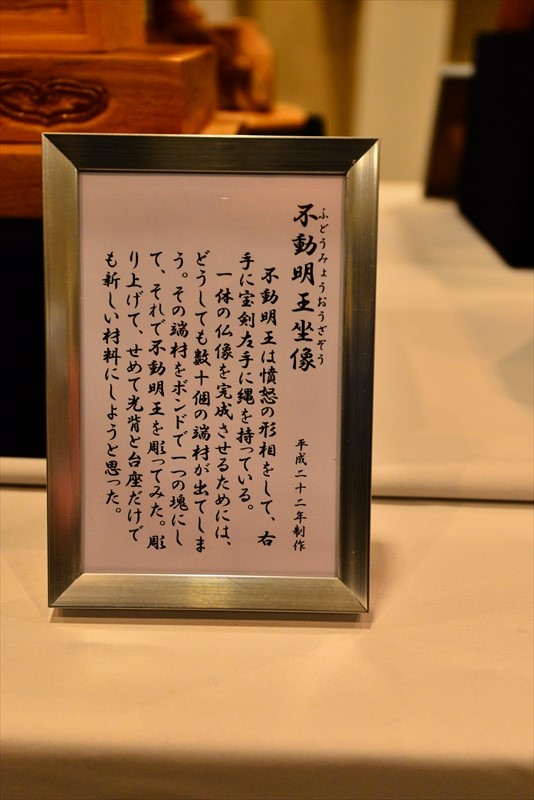 不動明王坐像
ふどうみょうおうざぞう
平成二十二年制作
不動明王は憤怒の形相をして、右
手に宝剣左手に縄を持っている。
一体の仏像を完成させるためには、
どうしても数十個の端材が出てしま
う。その端材をボンドで一つの塊にし
て、それで不動明王を彫ってみた。彫
り上げて、せめて光背と台座だけで
も新しい材料にしようと思った。